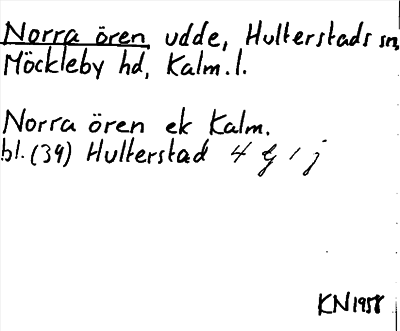 Norra ören, udde, Hulterstads sn,
Möckleby hd, Kalm. l.
Norra ören ek Kalm.
bl. (34) Hulterstad 4 g 1 j
KN 1958